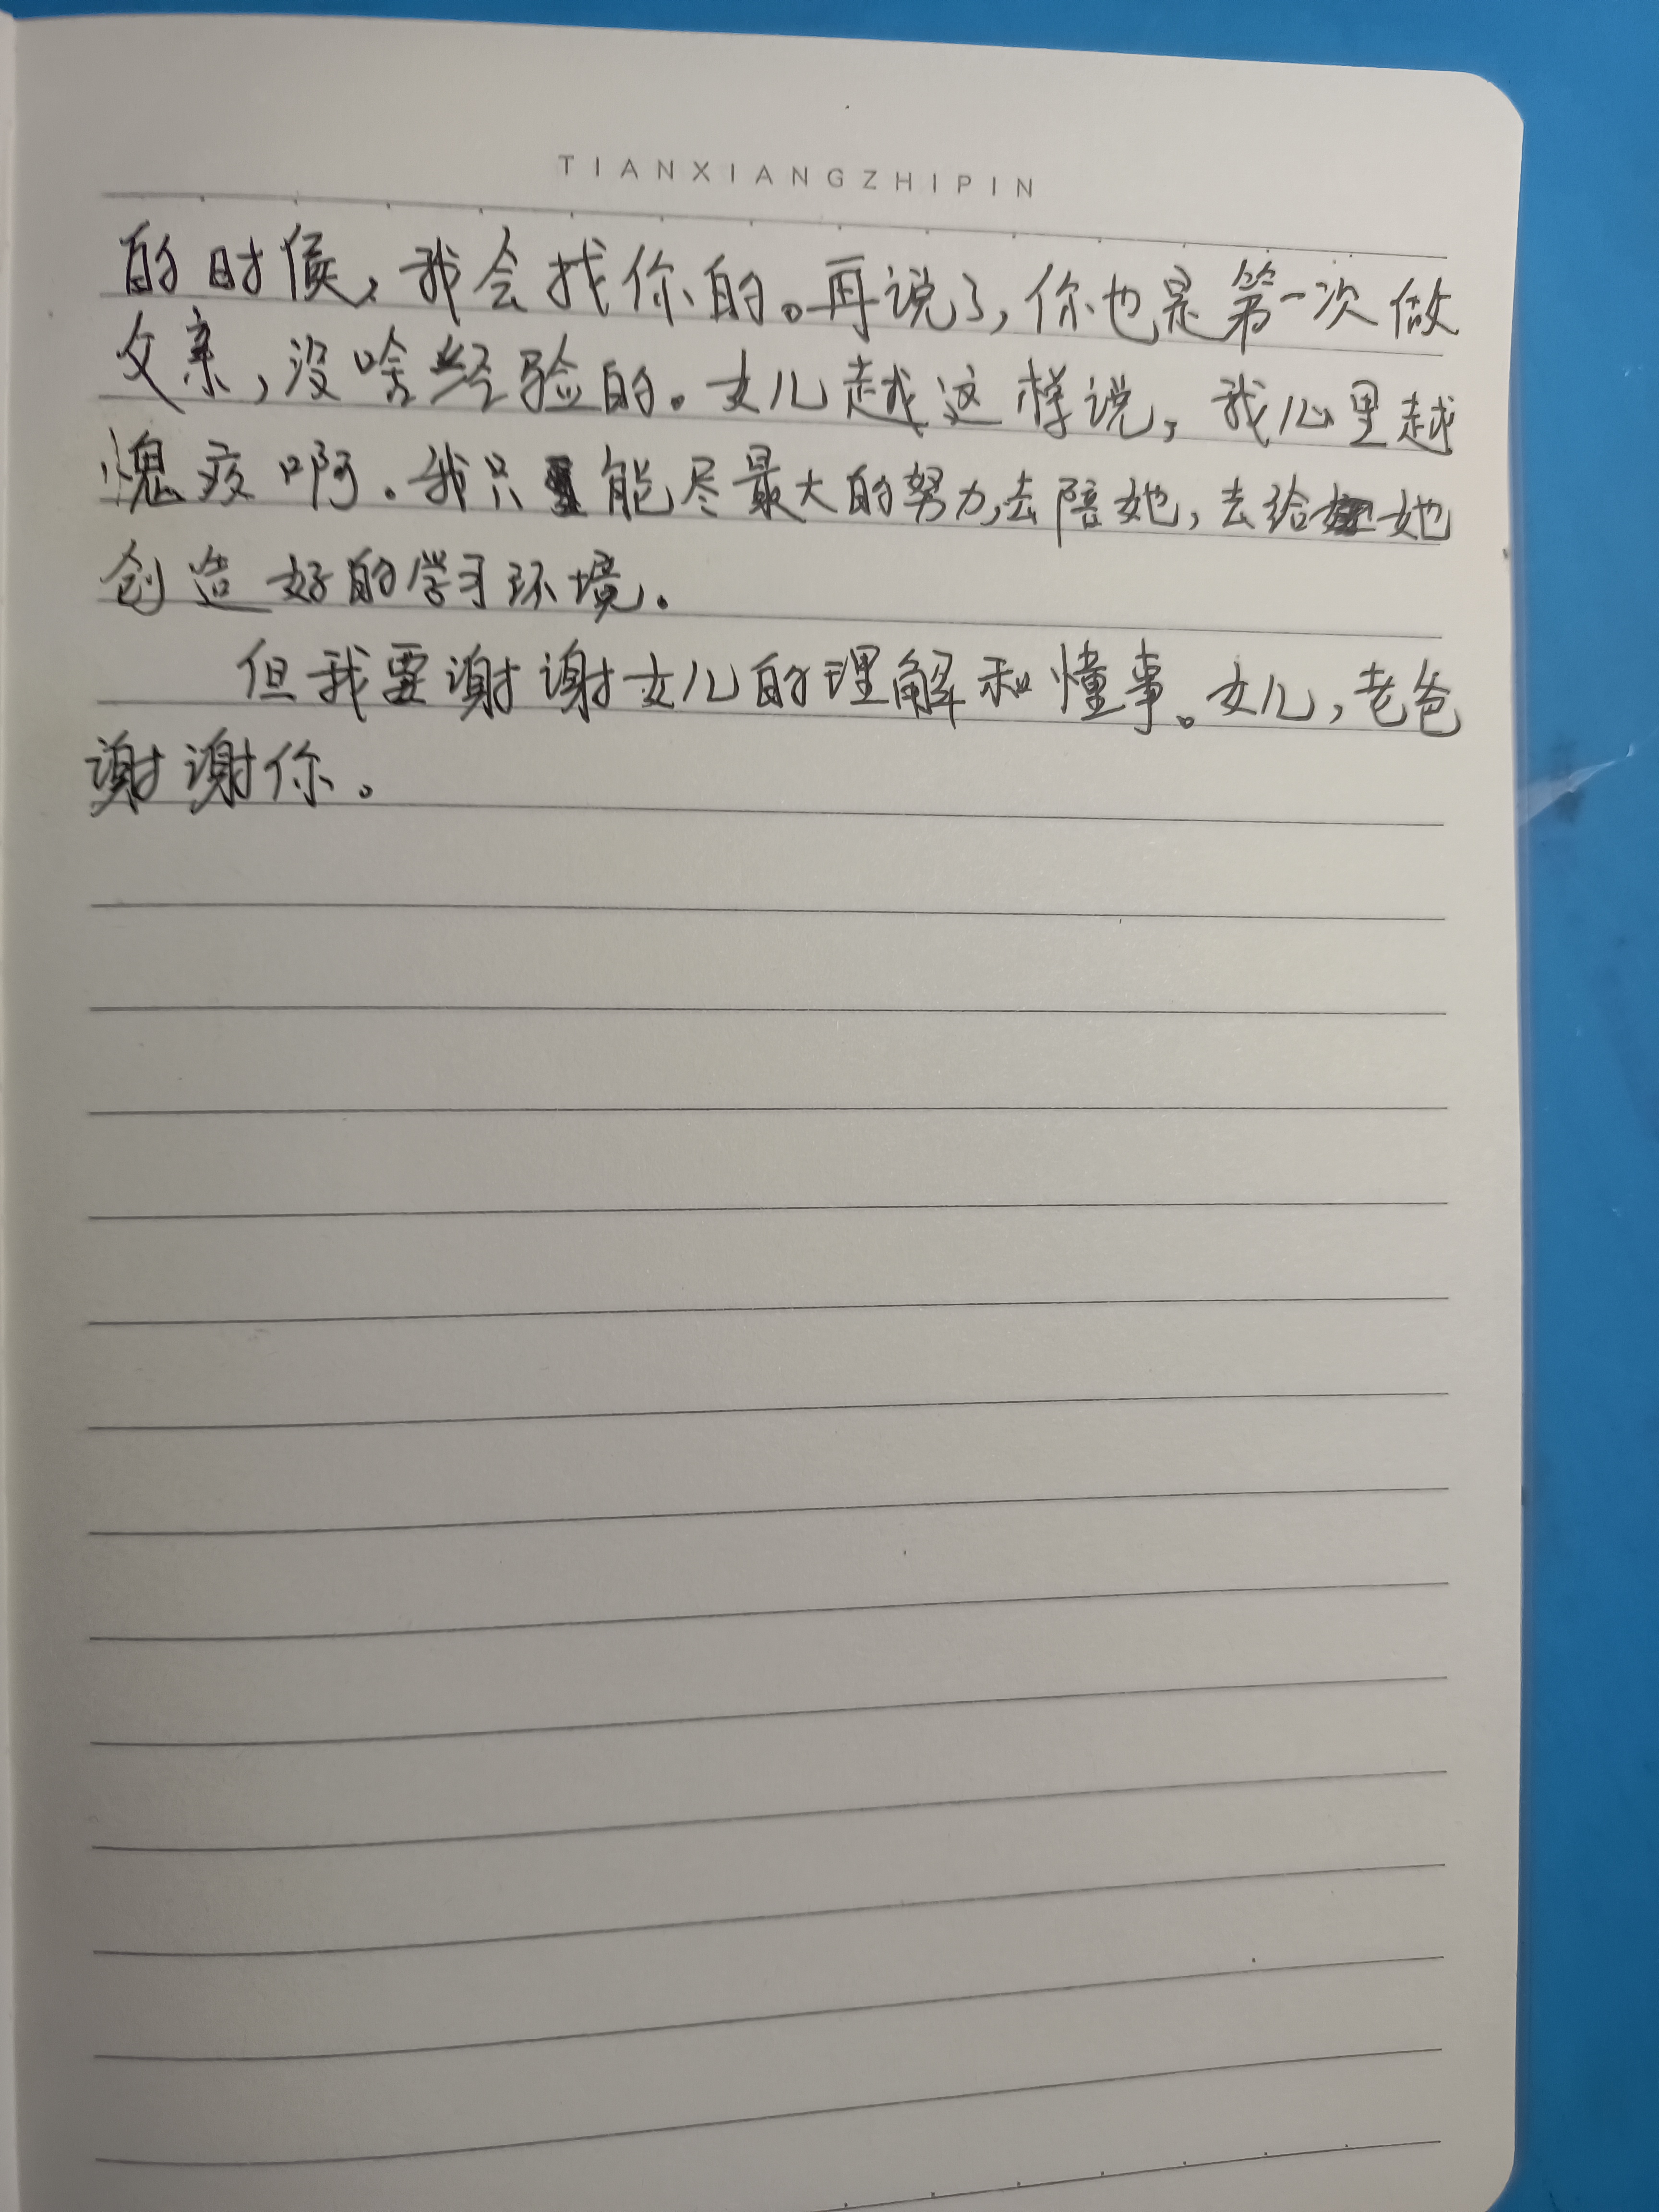 TIANXIANGZHIPIN
的时候，我会找你的。再说了，你也是第一次做
父亲，没啥经验的。女儿越这样说，我心里越
愧疚啊。我只能尽最大的努力，去陪她，去给她
创造好的学习环境。
但我要谢谢女儿的理解和懂事。女儿，老爸
谢谢你。